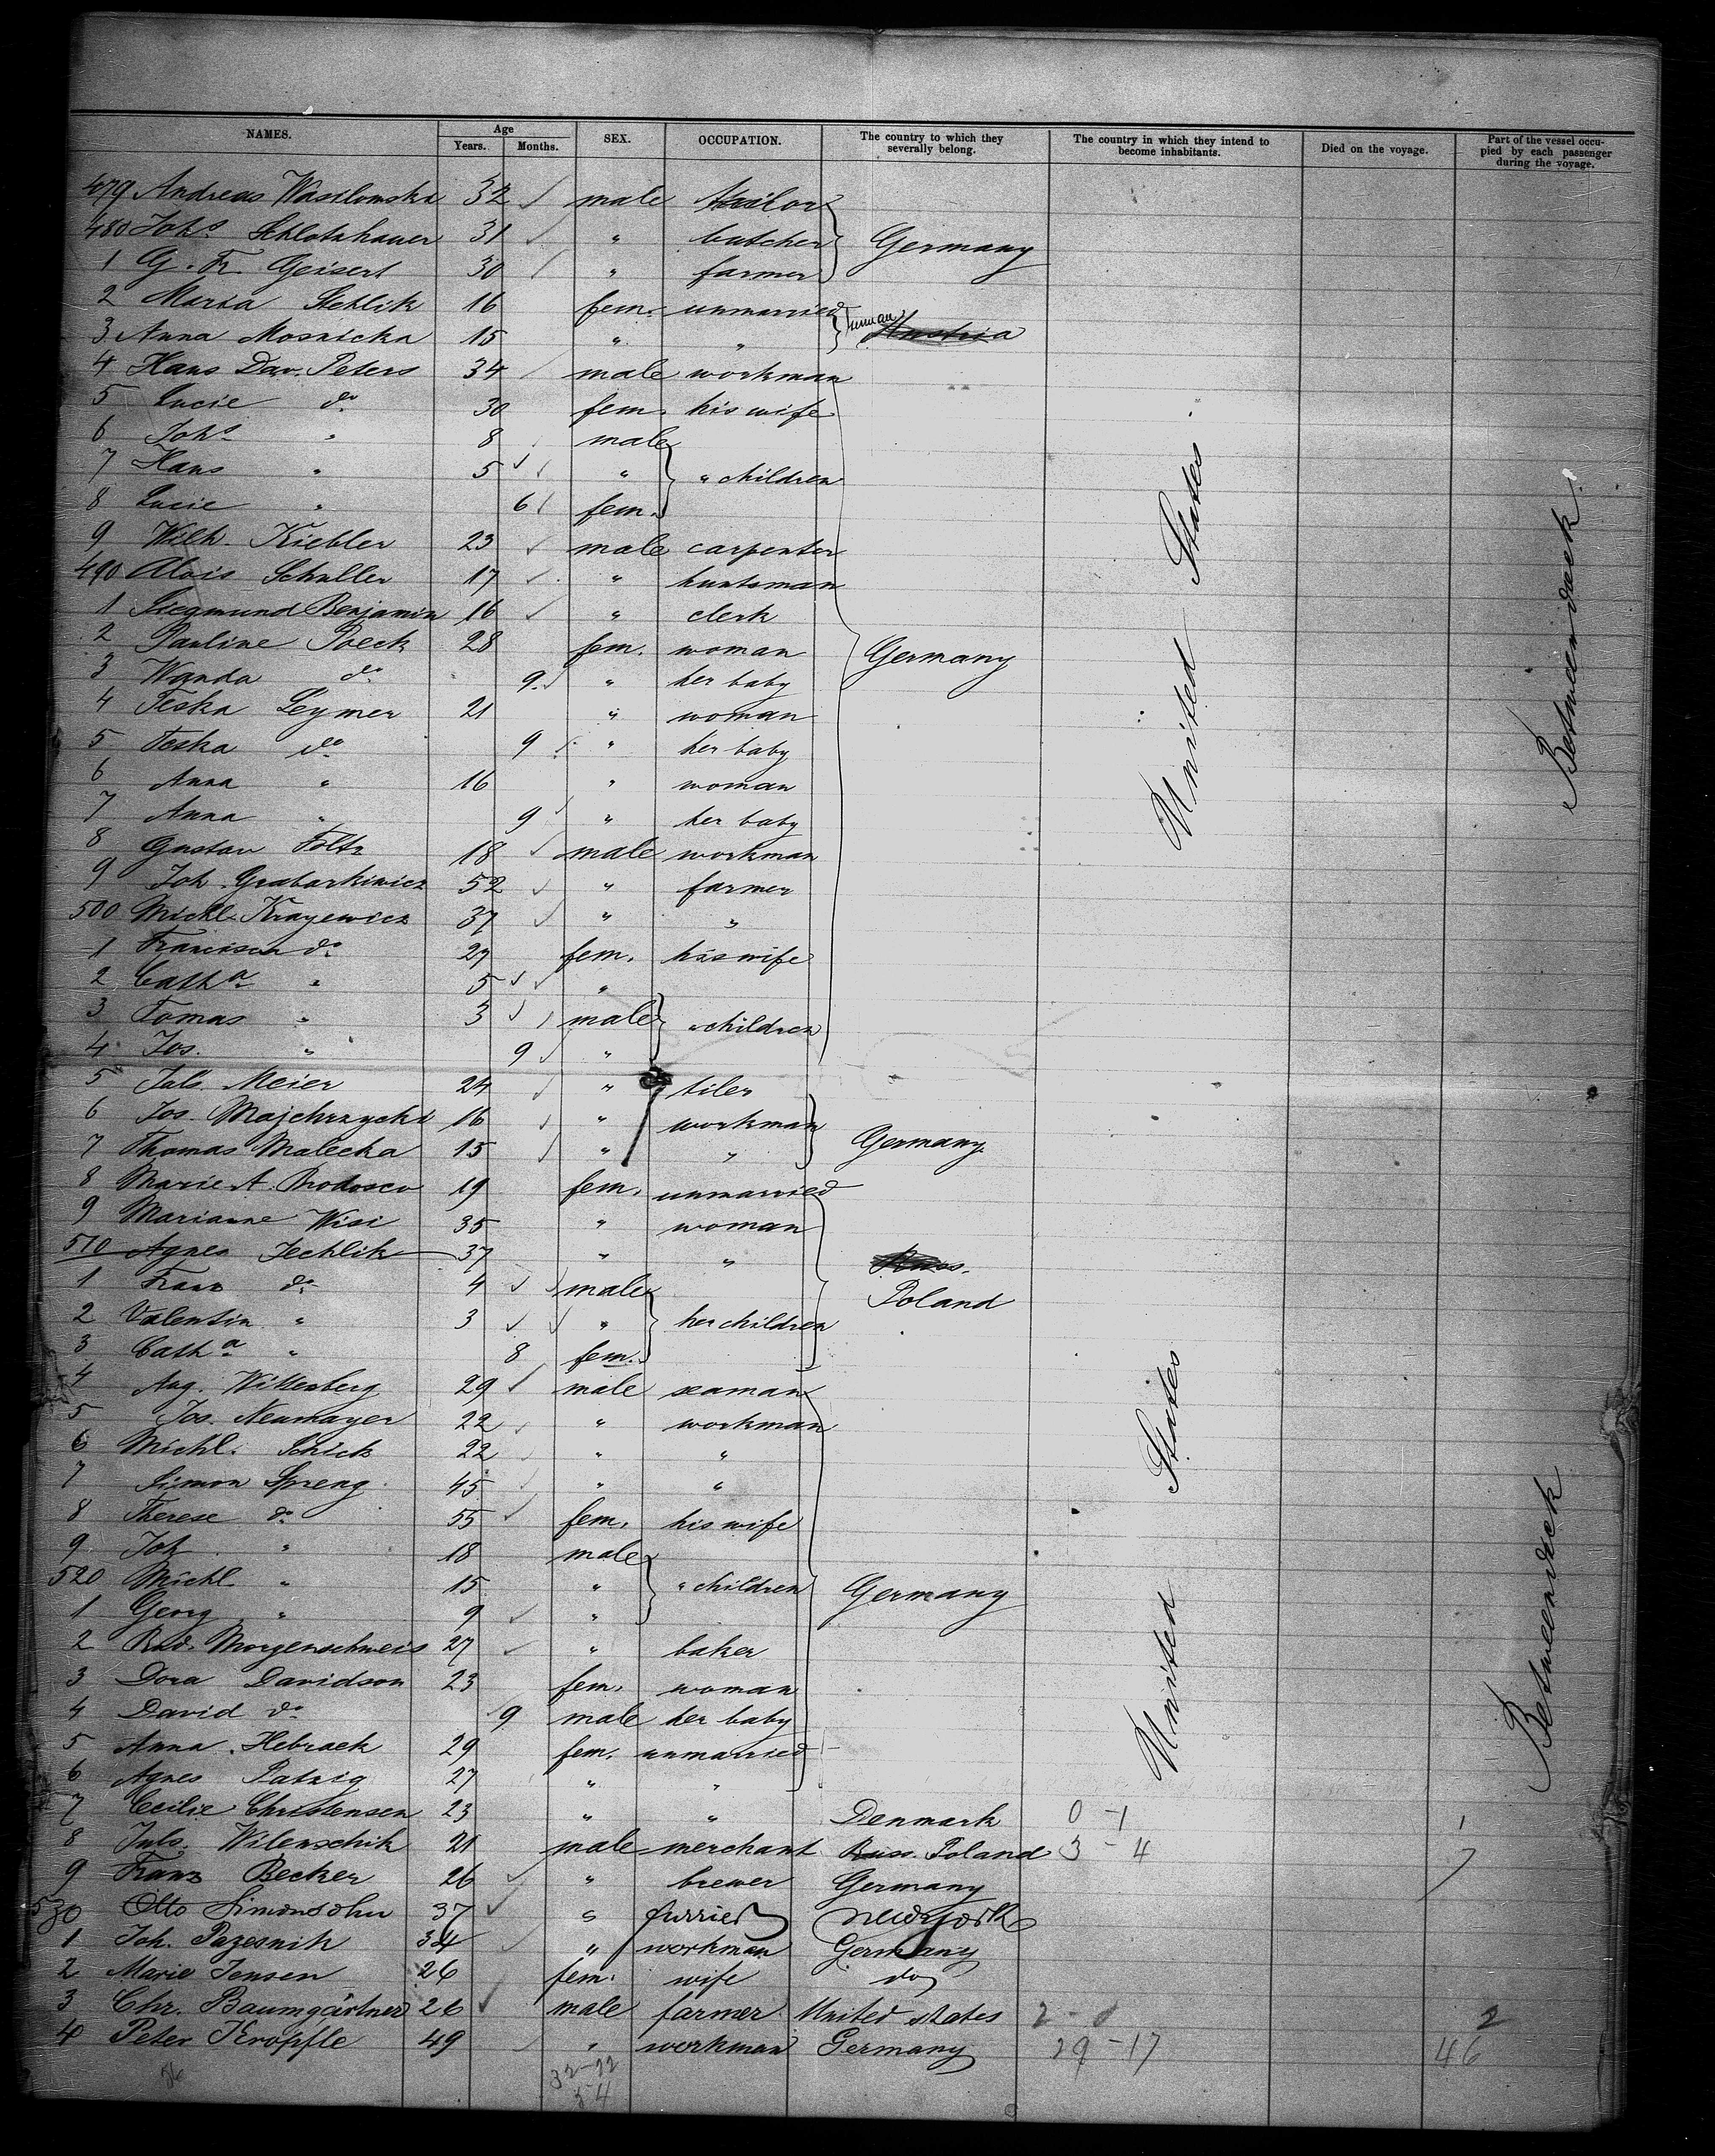 NAMES. Age Years. Months. SEX. OCCUPATION. The country to which they severally belong. The country in which they intend to become inhabitants. Died on the voyage. Part of the vessel occupied by each passenger during the voyage.
479 Andreas Wasilowska 32 male tailor
480 Johs Schlotzhauer 31 " butcher Germany
1 G. Fr. Geisert 30 " farmer
2 Maria Stehlik 16 fem. unmarried
3 Anna Mosnicka 15 " " Austria
4 Hans Dav. Peters 34 male workman
5 Lucie do 30 fem. his wife
6 Johs " 8 male
7 Hans " 5 " " children
8 Lucie " 6 fem.
9 Wilh. Kiebler 23 male carpenter
490 Alois Schuller 17 " huntsman
1 Siegmund Benjamin 16 " clerk
2 Pauline Poeck 28 fem. woman Germany
3 Wanda do 9 " her baby
4 Feska Leymer 21 " woman
5 Feska do 9 " her baby
6 Anna " 16 " woman
7 Anna " 9 " her baby
8 Gustav Foltz 18 male workman
9 Joh. Grabarkiwicz 52 " farmer
500 Michl. Krayewicz 37 " "
1 Francisca do 27 fem. his wife
2 Catha " 5 "
3 Tomas " 3 male " children
4 Jos. " 9 "
5 Jul. Meier 24 " tiler
6 Jos. Majchrzycki 16 " workman
7 Thomas Malecka 15 " " Germany
8 Marie A. Brodosco 19 fem. unmarried
9 Marianne Wisi 35 " woman
510 Agnes Jechlik 37 " " Russ.
1 Franz do 4 male Poland
2 Valentin " 3 " her children
3 Catha " 8 fem.
4 Aug. Wittenberg 29 male seaman
5 Jos. Neumayer 22 " workman
6 Michl. Schick 22 " "
7 Simon Spreng 45 " "
8 Therese do 55 fem. his wife
9 Joh. " 18 male
520 Michl. " 15 " " children Germany
1 Georg " 9 "
2 Rud. Morgenschweis 27 " baker
3 Dora Davidson 23 fem. woman
4 David do 9 male her baby
5 Anna Hebraek 29 fem. unmarried
6 Agnes Patzig 27 " "
7 Cecilie Christensen 23 " " Denmark 0-1 1
8 Juls. Wilenschik 21 male merchant Russ. Poland 3-4
9 Franz Becker 26 " brewer Germany
530 Otto Simonsohn 37 " furrier New York
1 Joh. Pazesnik 34 " workman Germany
2 Marie Jensen 26 fem. wife do
3 Chr. Baumgärtner 26 male farmer United States 2 2
4 Peter Kropfle 49 " workman Germany 29-17 46
32-22
5 4
United States
Betweendeck
United States
Betweendeck